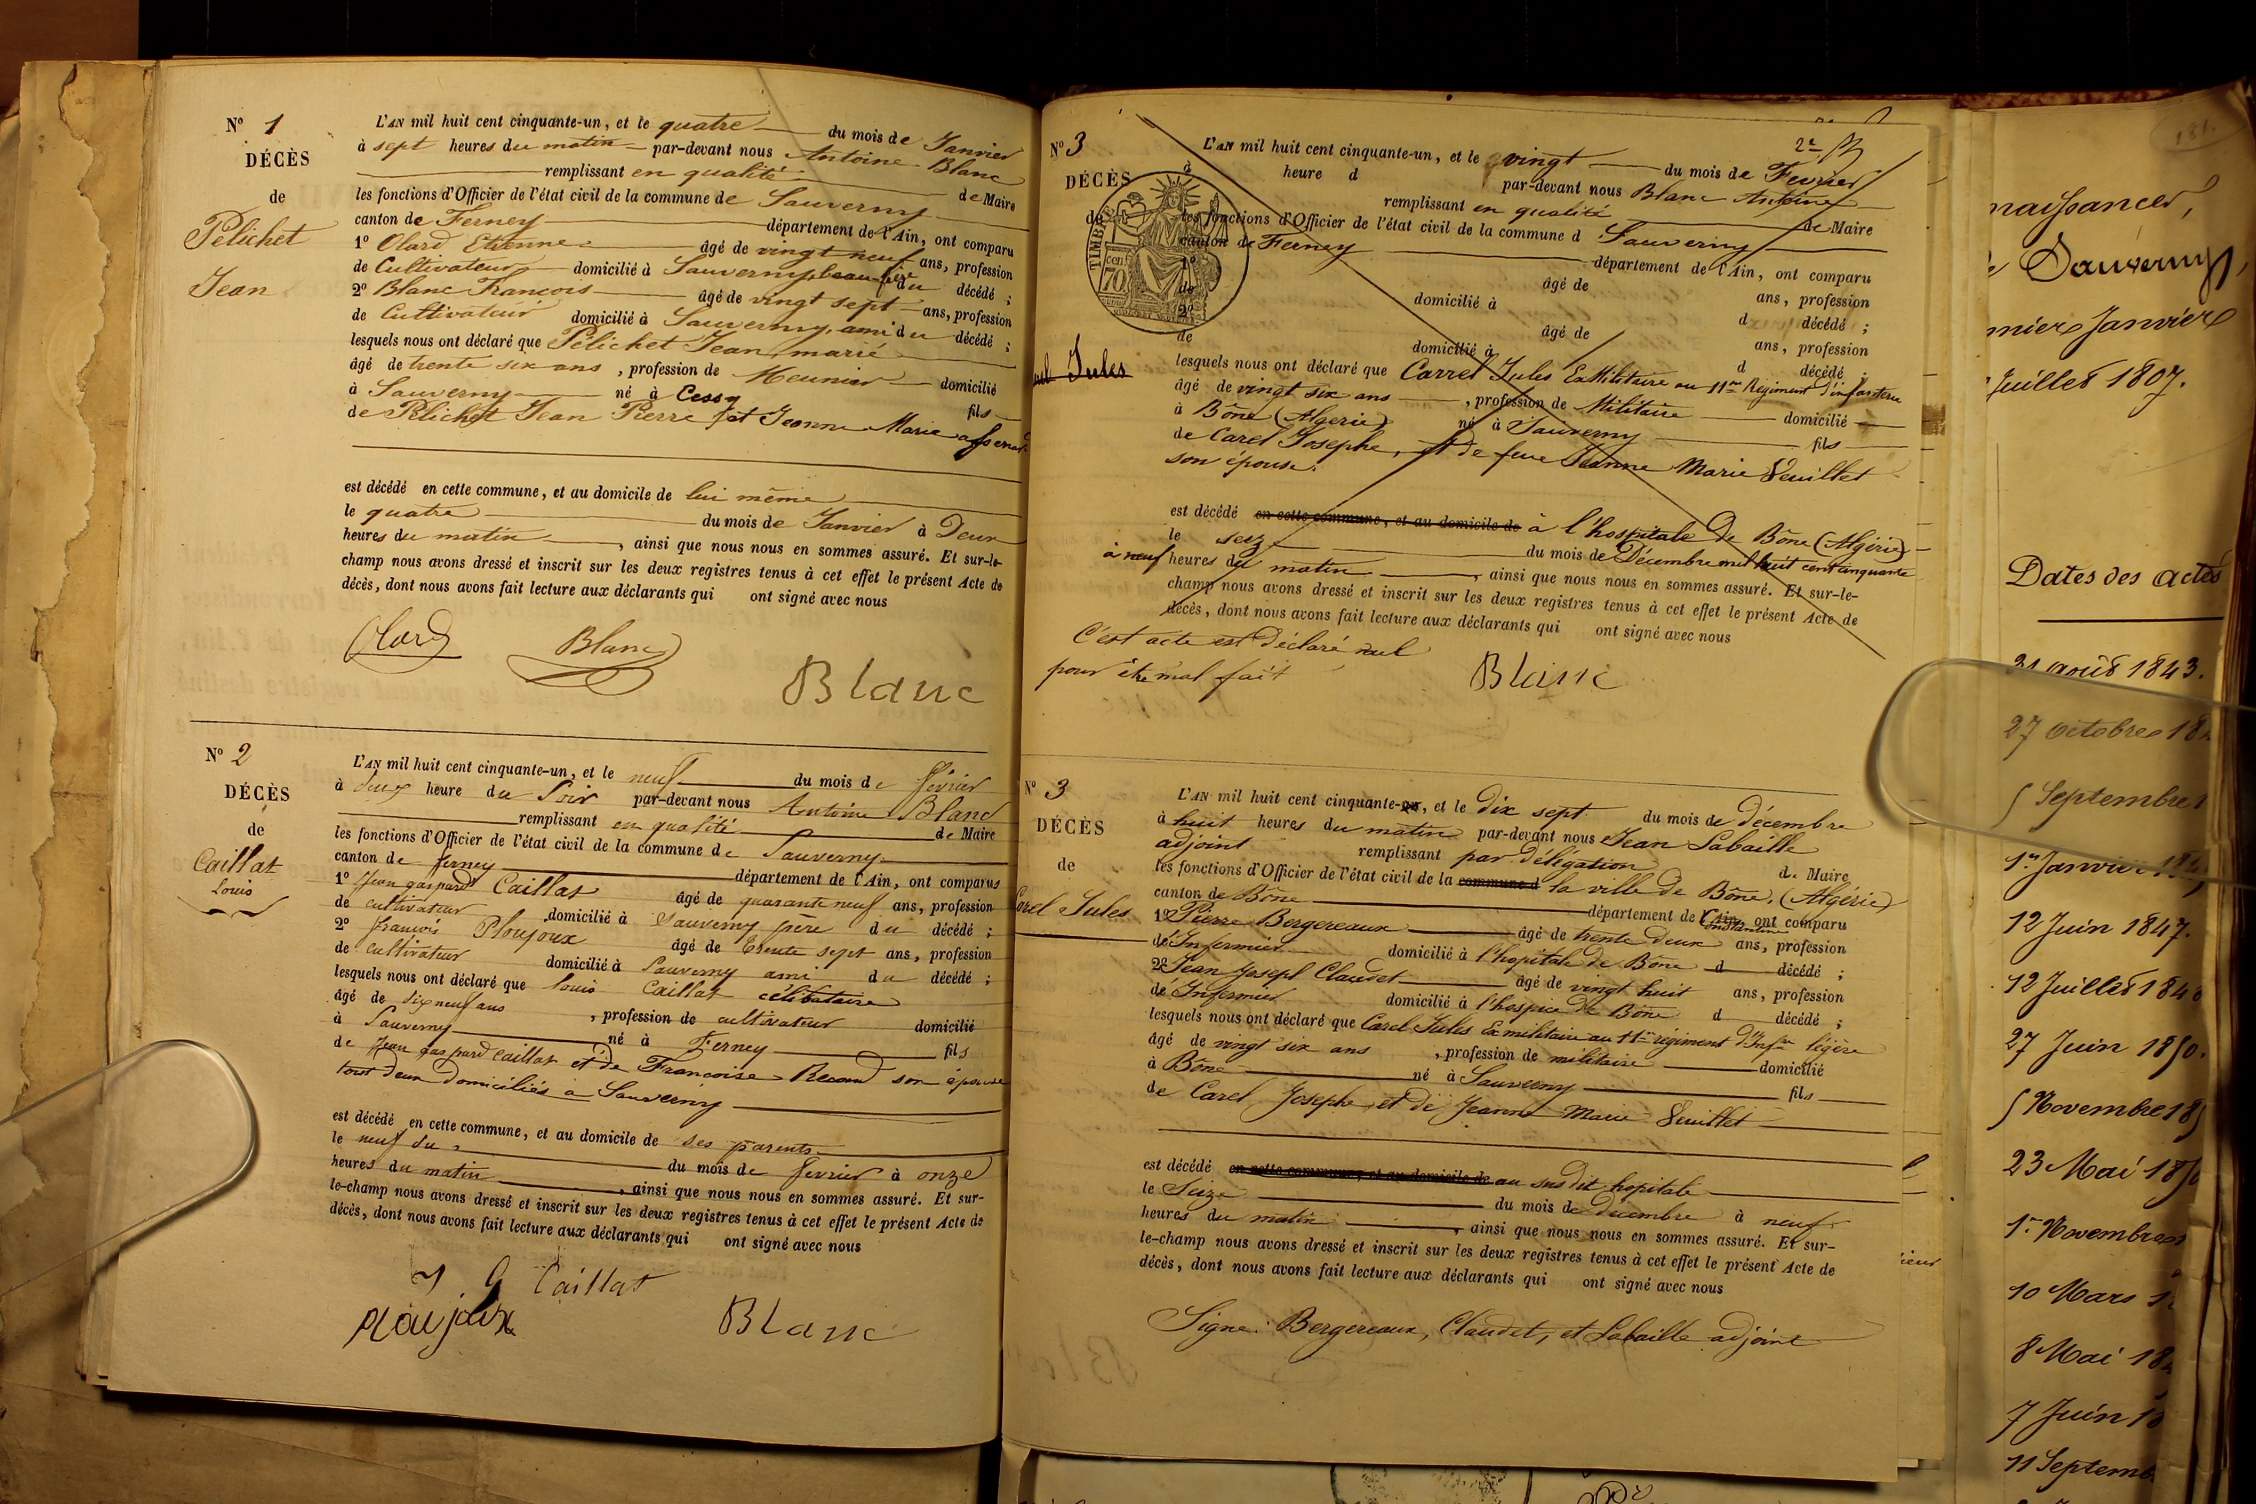 N° 1
DÉCÈS
de
Pelichet
Jean
L'AN mil huit cent cinquante-un, et le quatre du mois de Janvier
à sept heures du matin par-devant nous Antoine Blanc
remplissant en qualité de Maire
les fonctions d'Officier de l'état civil de la commune de Sauverny
canton de Ferney département de l'Ain, ont comparu
1° Olard Etienne âgé de vingt neuf ans, profession
de Cultivateur domicilié à Sauverny, beau frère du décédé ;
2° Blanc François âgé de vingt sept ans, profession
de Cultivateur domicilié à Sauverny, ami du décédé ;
lesquels nous ont déclaré que Pélichet Jean, marié
âgé de trente six ans , profession de Meunier domicilié
à Sauverny né à Cessy fils
de Pelichet Jean Pierre et Jeanne Marie
est décédé en cette commune, et au domicile de lui même
le quatre du mois de Janvier à Deux
heures du matin , ainsi que nous nous en sommes assuré. Et sur-le-
champ nous avons dressé et inscrit sur les deux registres tenus à cet effet le présent Acte de
décès, dont nous avons fait lecture aux déclarants qui ont signé avec nous
Olard Blanc
Blanc
N° 2
DÉCÈS
de
Caillat
Louis
L'AN mil huit cent cinquante-un, et le neuf du mois de février
à deux heure du soir par-devant nous Antoine Blanc
remplissant en qualité de Maire
les fonctions d'Officier de l'état civil de la commune de Sauverny
canton de ferney département de l'Ain, ont comparus
1° Jean gaspard Caillat âgé de quarante neuf ans, profession
de cultivateur domicilié à Sauverny père du décédé ;
2° françois Ploujoux âgé de trente sept ans, profession
de cultivateur domicilié à Sauverny ami du décédé ;
lesquels nous ont déclaré que louis Caillat célibataire
âgé de dix neuf ans , profession de cultivateur domicilié
à Sauverny né à Ferney fils
de Jean gaspard Caillat et de Françoise son épouse
tous deux domiciliés à Sauverny
est décédé en cette commune, et au domicile de ses parents
le neuf du du mois de février à onze
heures du matin , ainsi que nous nous en sommes assuré. Et sur-
le-champ nous avons dressé et inscrit sur les deux registres tenus à cet effet le présent Acte de
décès, dont nous avons fait lecture aux déclarants qui ont signé avec nous
J G Caillat
ploujoux Blanc
N° 3
DÉCÈS
de
Jules
TIMBRE
70
2e
L'AN mil huit cent cinquante-un, et le vingt du mois de Fevrier
à heure d par-devant nous Blanc Antoine
remplissant en qualité de Maire
les fonctions d'Officier de l'état civil de la commune d Sauverny
canton de Ferney département de l'Ain, ont comparu
1° âgé de ans, profession
de domicilié à d décédé ;
2° âgé de ans, profession
de domicilié à d décédé ;
lesquels nous ont déclaré que Carrel Jules Ex Militaire au 11me Régiment d'infanterie
âgé de vingt six ans , profession de Militaire domicilié
à Bône (Algérie) né à Sauverny fils
de Carel Josephe, et de feue Jeanne Marie Veuillet
son épouse.
est décédé en cette commune, et au domicile de à l'hospitale de Bône (Algérie)
le seize du mois de Décembre mil huit cent cinquante
à neuf heures du matin , ainsi que nous nous en sommes assuré. Et sur-le-
champ nous avons dressé et inscrit sur les deux registres tenus à cet effet le présent Acte de
décès, dont nous avons fait lecture aux déclarants qui ont signé avec nous
C'est acte est déclaré nul
pour être mal fait
Blanc
N° 3
DÉCÈS
de
Carel Jules
L'AN mil huit cent cinquante-un, et le Dix sept du mois de décembre
à huit heures du matin par-devant nous Jean Labaille
adjoint remplissant par délégation de Maire
les fonctions d'Officier de l'état civil de la commune d la ville de Bône, (Algérie)
canton de Bône département de l'Ain, ont comparu
1° Pierre Bergereaux âgé de trente deux ans, profession
de Infirmier domicilié à l'hopitale de Bône d décédé ;
2° Jean Joseph Claudet âgé de vingt huit ans, profession
de Infirmier domicilié à l'hospice de Bône d décédé ;
lesquels nous ont déclaré que Carel Jules Ex militaire au 11me régiment d'Infie légère
âgé de vingt six ans , profession de militaire domicilié
à Bône né à Sauverny fils
de Carel Josephe, et de Jeanne Marie Veuillet
est décédé en cette commune, et au domicile de au sus dit hopitale
le Seize du mois de Décembre à neuf
heures du matin , ainsi que nous nous en sommes assuré. Et sur-
le-champ nous avons dressé et inscrit sur les deux registres tenus à cet effet le présent Acte de
décès, dont nous avons fait lecture aux déclarants qui ont signé avec nous
Signé : Bergereaux, Claudet, et Labaille adjoint
181.
naissances,
Sauverny,
Janvier
Juillet 1807.
Dates des actes
31 août 1843.
27 octobre 18
5 Septembre 1
1er Janvier 184
12 Juin 1847.
12 Juillet 184
27 Juin 1850.
5 Novembre 18
23 Mai 18
1er Novembre
10 Mars 1
8 Mai 18
7 Juin 1
11 Septemb